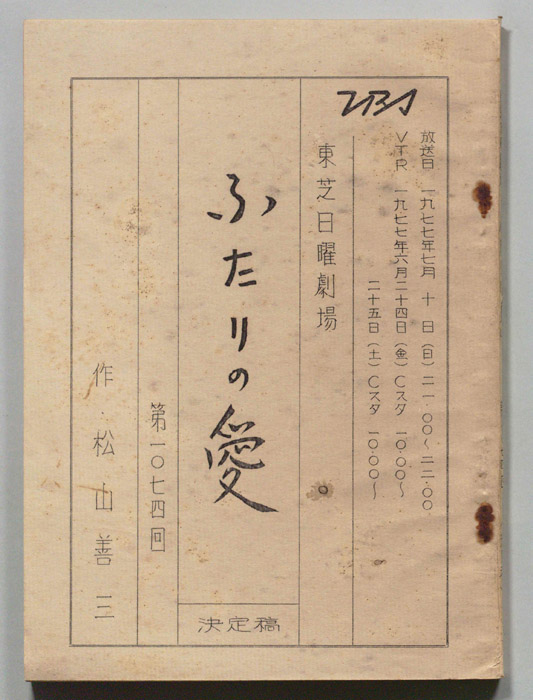 TBS
放送日 一九七七年七月 十 日（日）二一・〇〇〜二二・〇〇
VTR 一九七七年六月二十四日（金）Cスタ 一〇・〇〇〜
二十五日（土）Cスタ 一〇・〇〇〜
東芝日曜劇場
ふたりの愛
決定稿
第一〇七四回
作・松山善三